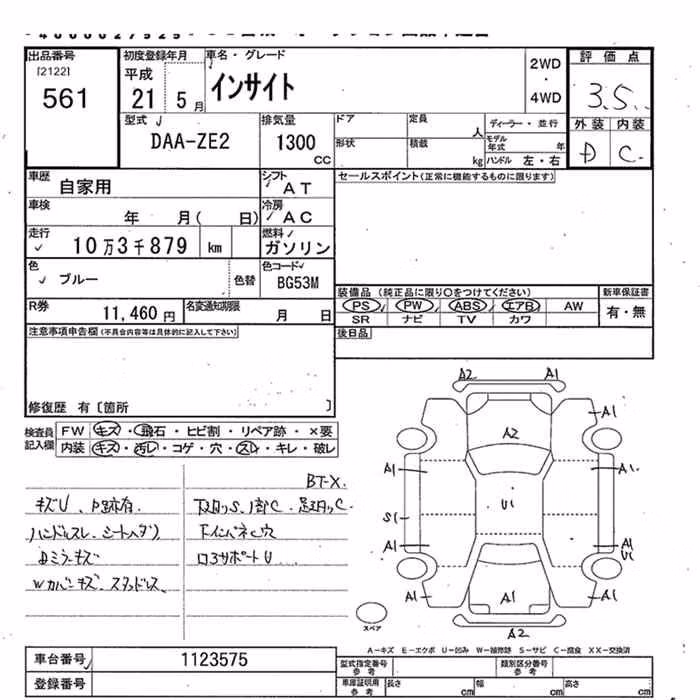 出品番号
[2122]
561
初度登録年月
平成
21 5月
車名・グレード
インサイト
2WD
・
4WD
評価点
3.5
外装 内装
D C
型式
DAA-ZE2
排気量
1300
CC
ドア
定員
人
ディーラー・並行
形状
積載
kg
モデル年式
年
ハンドル 左・右
車歴
自家用
シフト
AT
セールスポイント(正常に機能するものに限ります)
車検
年 月( 日)
冷房
AC
走行
10万3千879 km
燃料
ガソリン
色
ブルー
色替
色コード
BG53M
装備品(純正品に限り○をつけてください)
新車保証書
PS PW ABS エアB AW
有・無
SR ナビ TV カワ
R券
11,460 円
名変通知期限
月 日
後日品
注意事項申告欄(不具合内容等は具体的に記入して下さい)
修復歴 有〔箇所 〕
検査員記入欄
FW キズ・飛石・ヒビ割・リペア跡・×要
内装 キズ・汚レ・コゲ・穴・スレ・キレ・破レ
BT-X.
キズU、
ハンドルスレ、シートヘタリ
Dミラーキズ
Wカバーキズ、スタッドレス
下インパネビス穴
コアサポートU
A2 A1
A1
A2
A1 A1
U1
S1
A1 A1
U1
A1 A1 A1
A2
スペア
A-キズ E-エクボ U-凹み W-補修跡 S-サビ C-腐食 XX-交換済
車台番号
1123575
登録番号
型式指定番号
参考
類別区分番号
参考
車庫証明用
参考
長さ cm 幅 cm 高さ cm